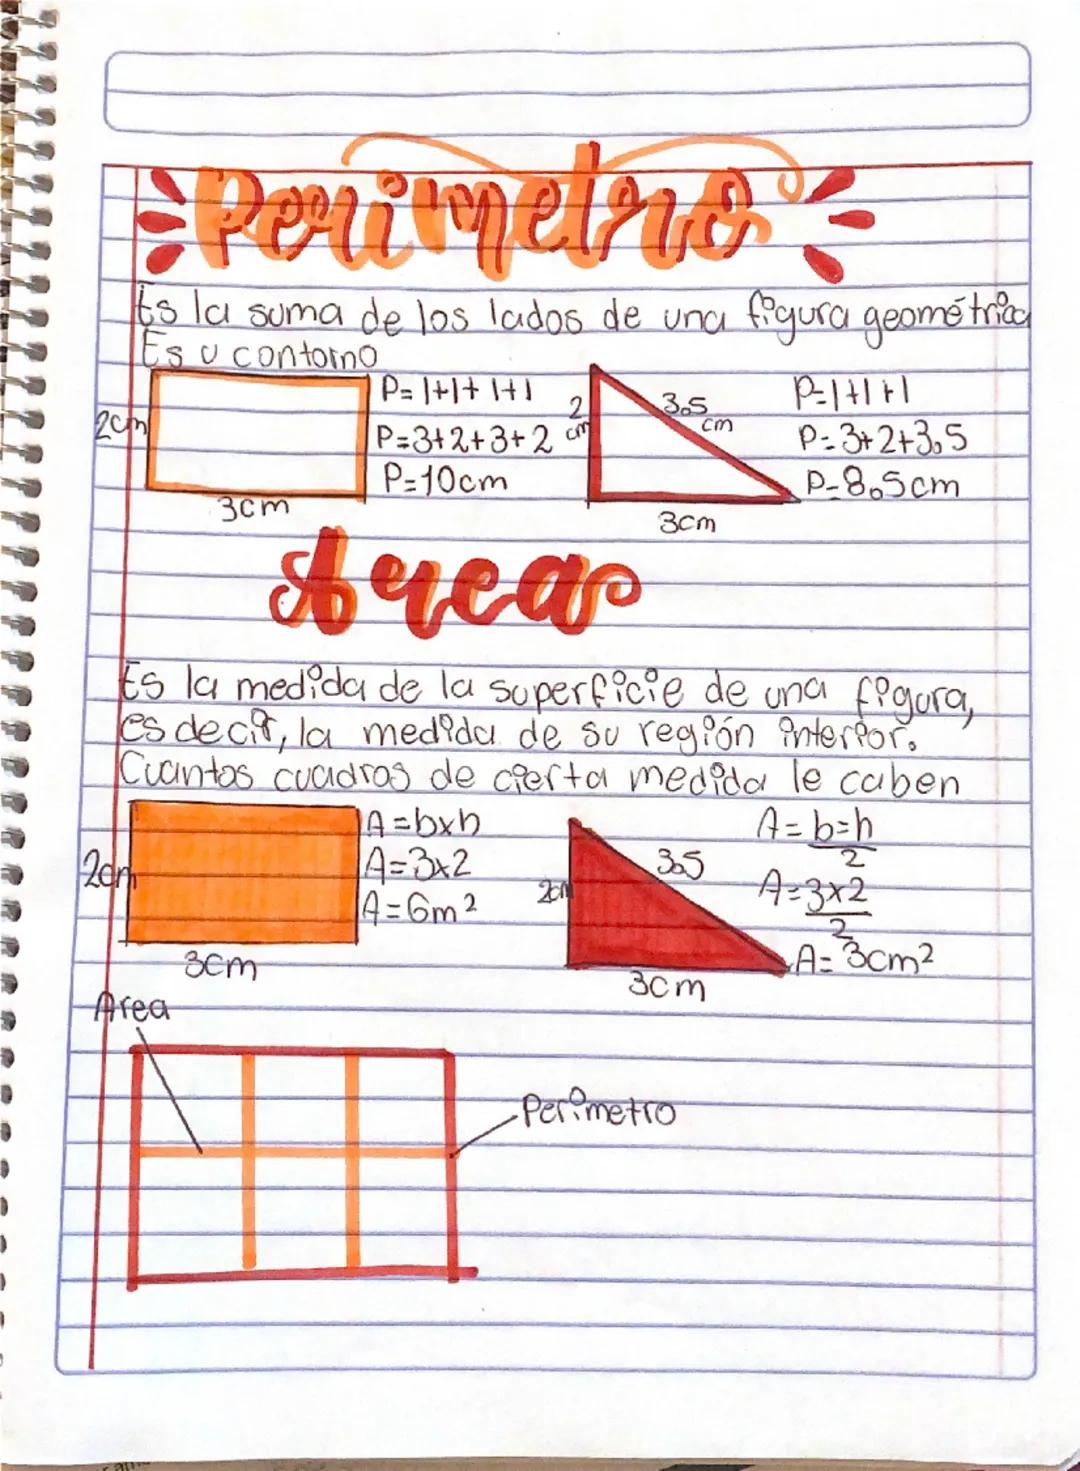 Perimetro
Es la suma de los lados de una figura geométrica
Es u contorno
2cm
3cm
P=l+l+l+l
P=3+2+3+2
P=10cm
2 cm
3.5 cm
3cm
P=l+l+l
P=3+2+3,5
P=8.5cm
Area
Es la medida de la superficie de una figura,
es decir, la medida de su región interior.
Cuantos cuadros de cierta medida le caben
2cm
3cm
A=bxh
A=3x2
A=6m²
2cm
3.5
3cm
A=b=h
2
A=3x2
2
A=3cm²
Area
Perimetro